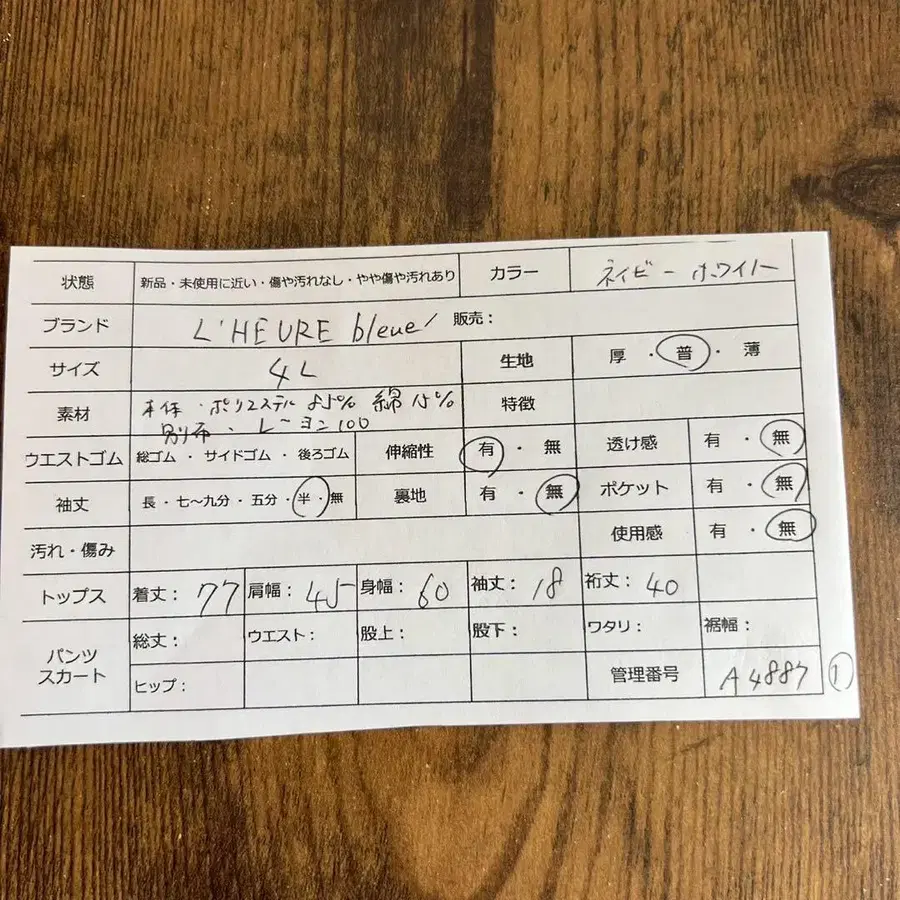 状態 新品・未使用に近い・傷や汚れなし・やや傷や汚れあり カラー ネイビー ホワイト
ブランド L'HEURE bleue/ 販売：
サイズ 4L 生地 厚・普・薄
素材 本体・ポリエステル 85% 綿 15% 特徴
別布・レーヨン100
ウエストゴム 総ゴム・サイドゴム・後ろゴム 伸縮性 有・無 透け感 有・無
袖丈 長・七〜九分・五分・半・無 裏地 有・無 ポケット 有・無
汚れ・傷み 使用感 有・無
トップス 着丈：77 肩幅：45 身幅：60 袖丈：18 裄丈：40
パンツ スカート 総丈： ウエスト： 股上： 股下： ワタリ： 裾幅：
ヒップ： 管理番号 A4887 ①